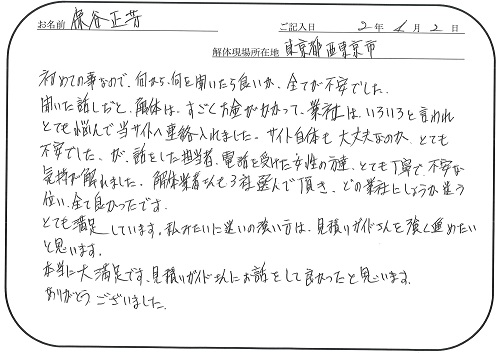 お名前 保谷正芳 ご記入日 2年4月2日
解体現場所在地 東京都西東京市
初めての事なので、何から、何を聞いたら良いか、全てが不安でした。
聞いた話しだと、解体は、すごくお金がかかって、業社は、いろいろと言われ
とても悩んで当サイトへ連絡入れました。サイト自体も大丈夫なのか、とても
不安でした、が、話をした担当者、電話を受けた女性の方達、とても丁寧で、不安な
気持が解れました。解体業者さんも3社選んで頂き、どの業社にしようか迷う
位い、全て良かったです。
とても満足しています。私みたいに迷いの強い方は、見積りガイドさんを強く進めたい
と思います。
本当に大満足です、見積りガイドさんにお話をして良かったと思います。
ありがとうございました。